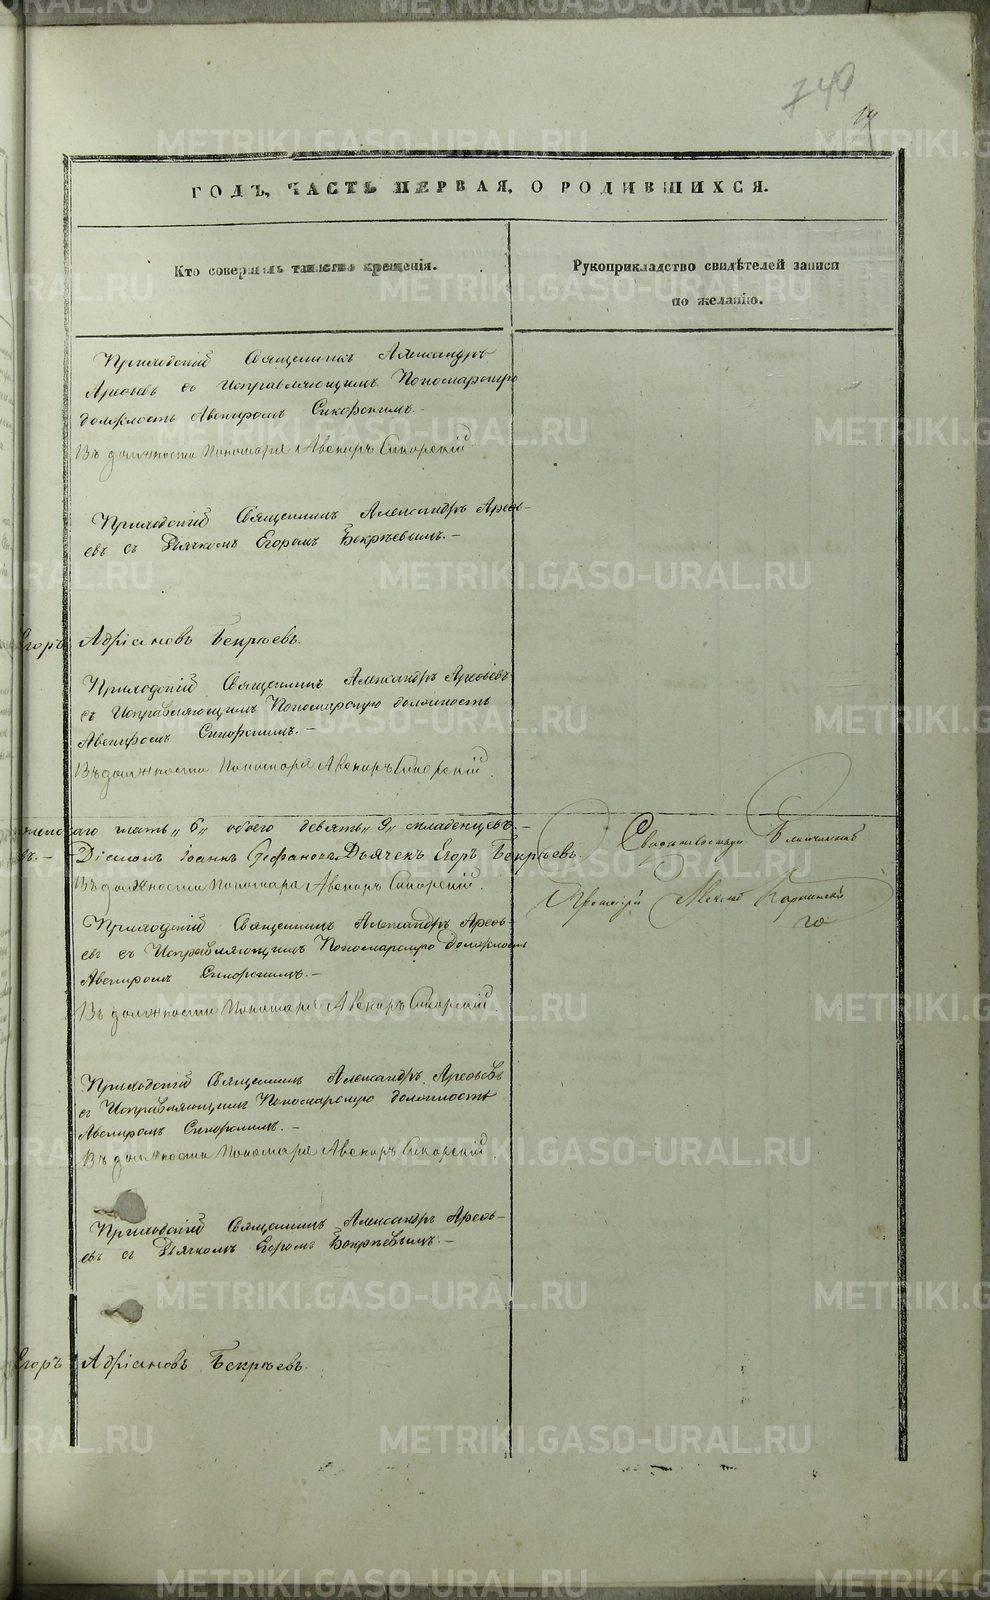 740
ГОДЪ, ЧАСТЬ ПЕРВАЯ, О РОДИВШИХСЯ.
Кто совершалъ таинство крещенія.
Рукоприкладство свидѣтелей записи
по желанію.
Приходскій Священникъ Александръ
Арефьевъ съ Исправляющимъ Пономарскую
должность Авениромъ Сикорскимъ.-
Въ должности Пономаря Авениръ Сикорскій
Приходскій Священникъ Александръ Арефь-
евъ съ Дьячкомъ Егоромъ Бекрѣевымъ.-
Егоръ Адріановъ Бекрѣевъ.
Приходскій Священникъ Александръ Арефьевъ
съ Исправляющимъ Пономарскую должность
Авениромъ Сикорскимъ.-
Въ должности Пономаря Авениръ Сикорскій.
шесть „6„ обоего девять „9„ младенцевъ.-
Діаконъ Іоаннъ Дьячекъ Егоръ Бекрѣевъ.
Въ должности Пономаря Авениръ Сикорскій.
Свидѣтельствовалъ Благочинный
Протоіерей
Приходскій Священникъ Александръ Арефь-
евъ съ Исправляющимъ Пономарскую должность
Авениромъ Сикорскимъ.-
Въ должности Пономаря Авениръ Сикорскій.
Приходскій Священникъ Александръ Арефьевъ
съ Исправляющимъ Пономарскую должность
Авениромъ Сикорскимъ.-
Въ должности Пономаря Авениръ Сикорскій.
Приходскій Священникъ Александръ Арефь-
евъ съ Дьячкомъ Егоромъ Бекрѣевымъ.-
Егоръ Адріановъ Бекрѣевъ.
METRIKI.GASO-URAL.RU